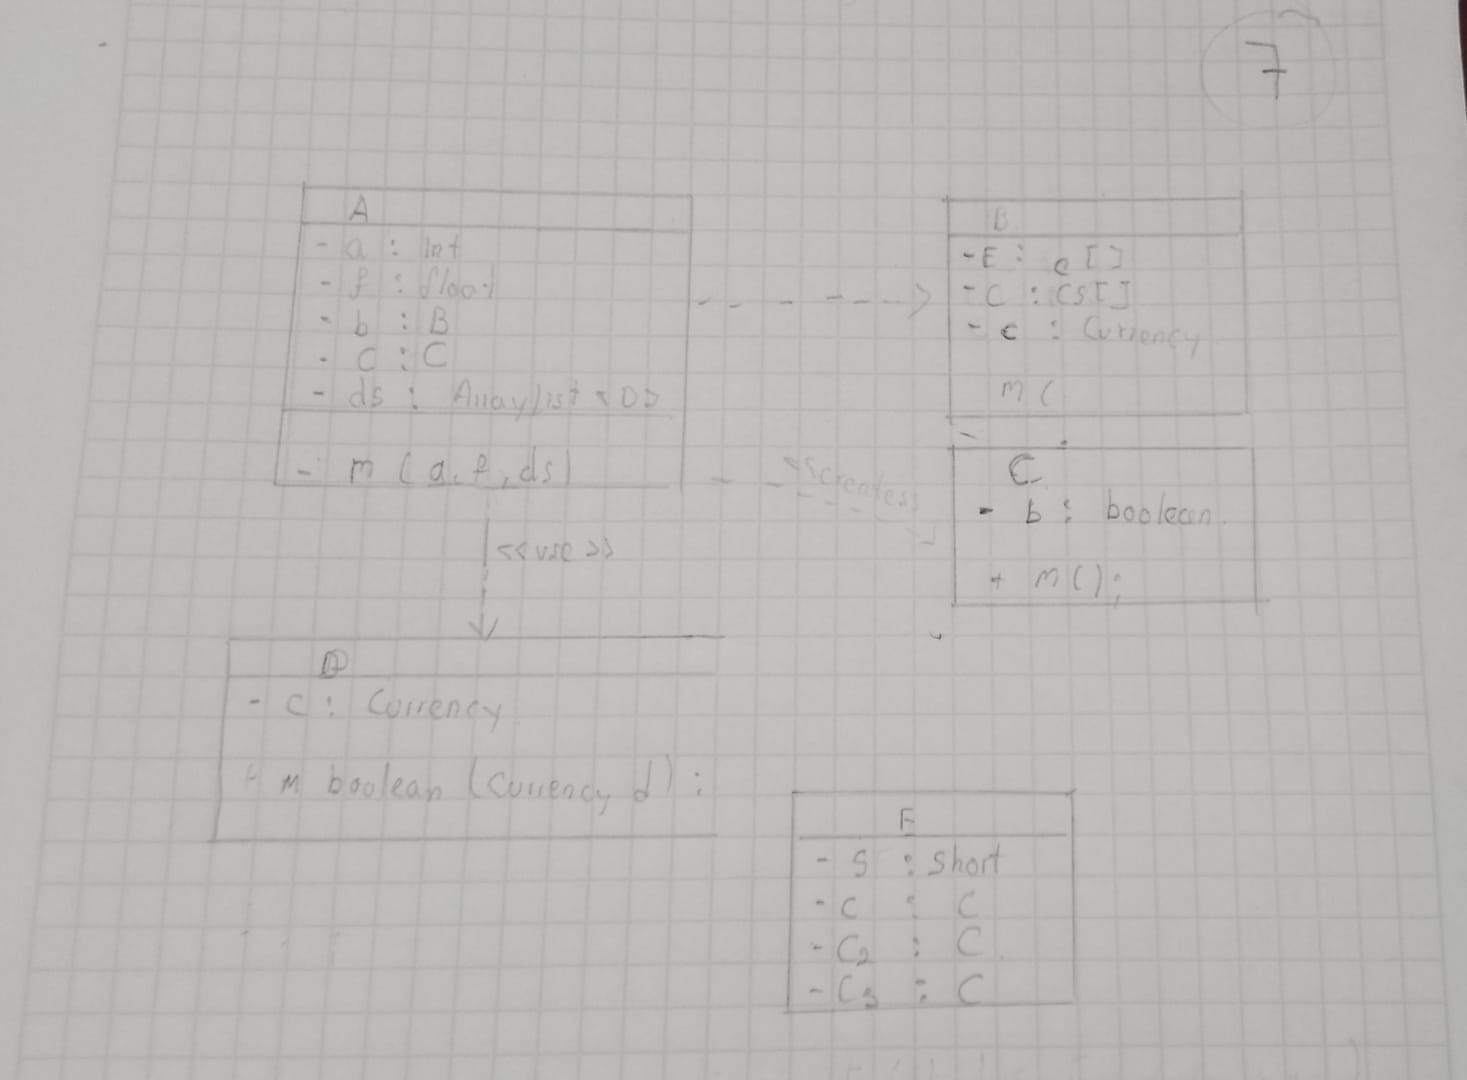 7
A
- a : Int
- f : float
- b : B
- C : C
- ds : ArrayList <D>
- m (a, f, ds)
B
- E : e []
- C : Cs []
- e : Currency
m (
<<creates>>
C
- b : boolean
+ m();
<<use>>
D
- c : Currency
+ m boolean (Currency d) :
E
- S : Short
- C : C
- C2 : C
- C3 : C